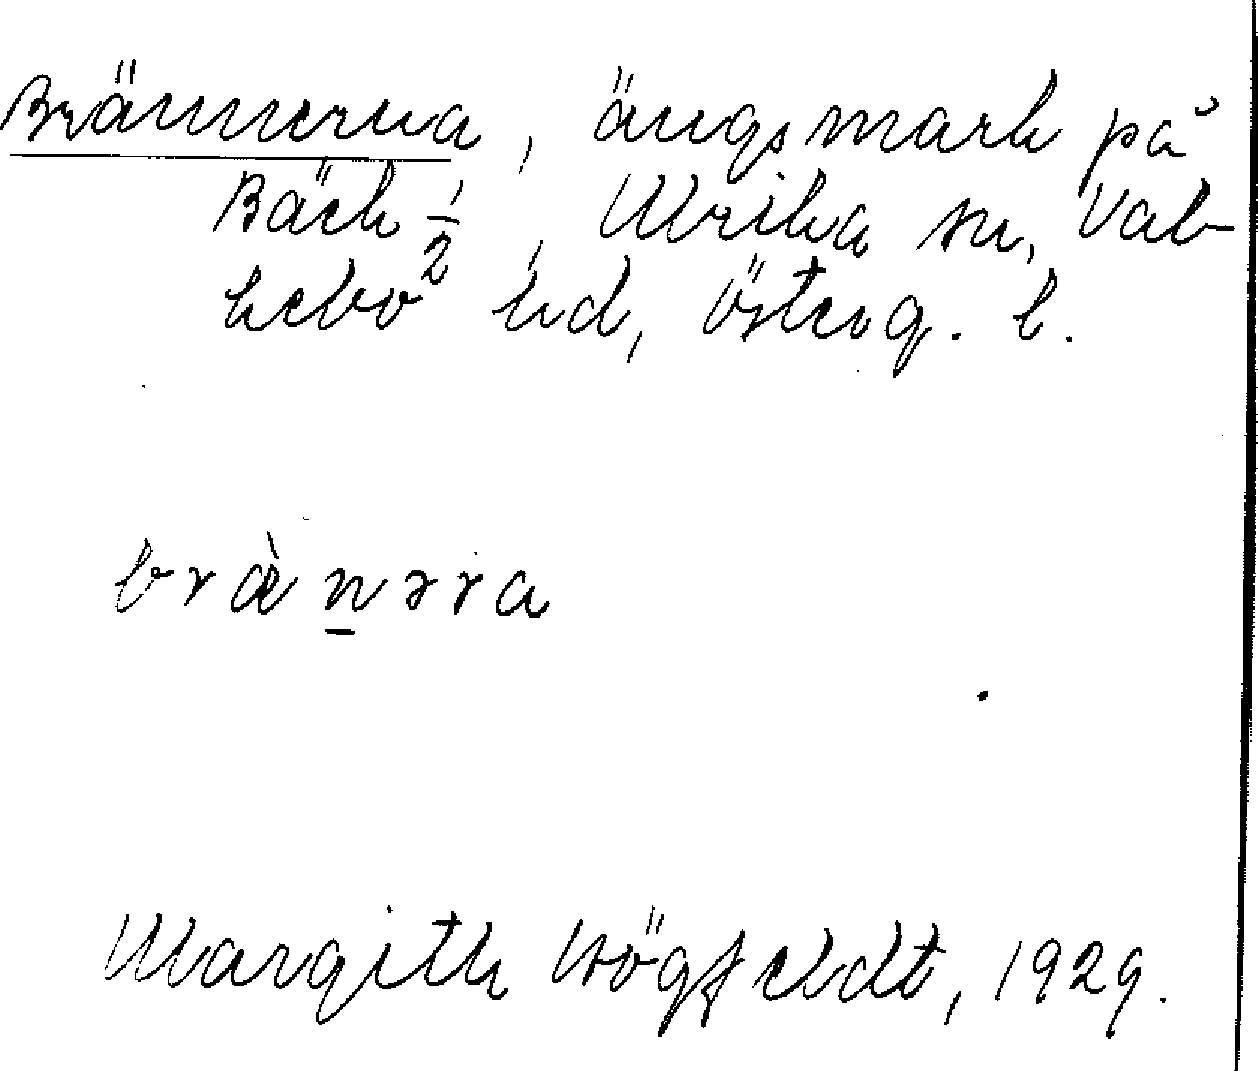 Brännerna, ängsmark på
Bäck ½, Ulrika sn, Val-
kebo hd, Österg. l.
brä̀n̲əra
Margith Högfeldt, 1929.